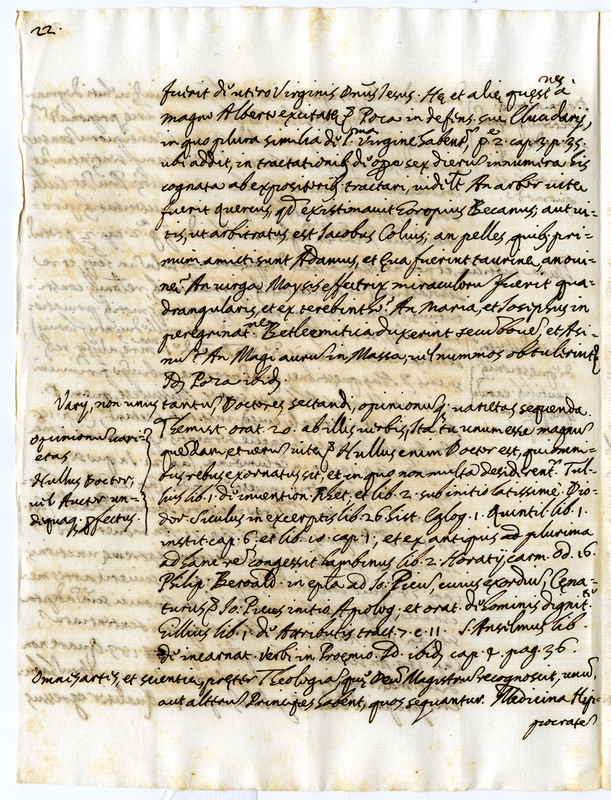 22.
fuerit de utero Virginis Dnus Iesus. Hę et alię quęstnes a
magno Alberto excitatę Poza in defens. sui Elucidarij,
in quo plura similia de Bma Virgine habent, p.e 2. cap. 3. p. 35.
ubi addit, in tractationib de ope sex dierum innumera his
cognata ab expositorib tractari, An arbor vitę
fuerit quercus, qd existimavit Goropius Becanus; aut vi-
tis, ut arbitratus est Iacobus Colius; an pelles, quib pri-
mum amicti sunt Adamus, et Eva fuerint taurinę, an oui-
nę? An virga Moysis effectrix miraculorum fuerit qua-
drangularis, et ex terebintho? An Maria, et Iosephus in
peregrinatne Betleemitica duxerint secum bovem, et Asi-
num? An Magi aurum in Massa, vel nummos obtulerint
Poza ibid.
Varij, non unus tantum Doctores sectandi, opinionumq varietas sequenda.
Themist. orat. 20. ab illis verbis, Ita tu unum esse magnum
opinionum vari-
etas.
Nullus Doctor,
vel Auctor un-
dequaq pfectus.
quoddam, et verum Nullus enim Doctor est, qui omni-
bus rebus exornatus sit, et in quo non multa desiderent. Tul-
lius lib. 1. de invention. Rhet. et lib. 2. sub initio latissime. Dio-
dor. Siculus in excerptis lib. 26. hist. Eglog. 1. Quintil. lib. 1.
instit. cap. 6. et lib. 10. cap. 1, et ex antiquis ad plurima
ad hanc rem congessit Lambinus lib. 2. Horatij carm. Od. 16.
Philip. Beroald. in epla ad Io. Picum, cuius exordium, Cęna-
turus Io. Picus initio Apolog. et orat. de hominis dignit.
Gillius lib. 1. de Attributis tract. 7. c. 11. S. Anselmus lib.
de incarnat. Verbi in Proęmio. ibid. cap. 4. pag. 36.
Omnis artis, et scientię, pręter Theologiam, quę Deum Magistrum recognoscit, unum,
aut alterum Principes habent, quos sequantur. Medicina Hyp-
pocratem